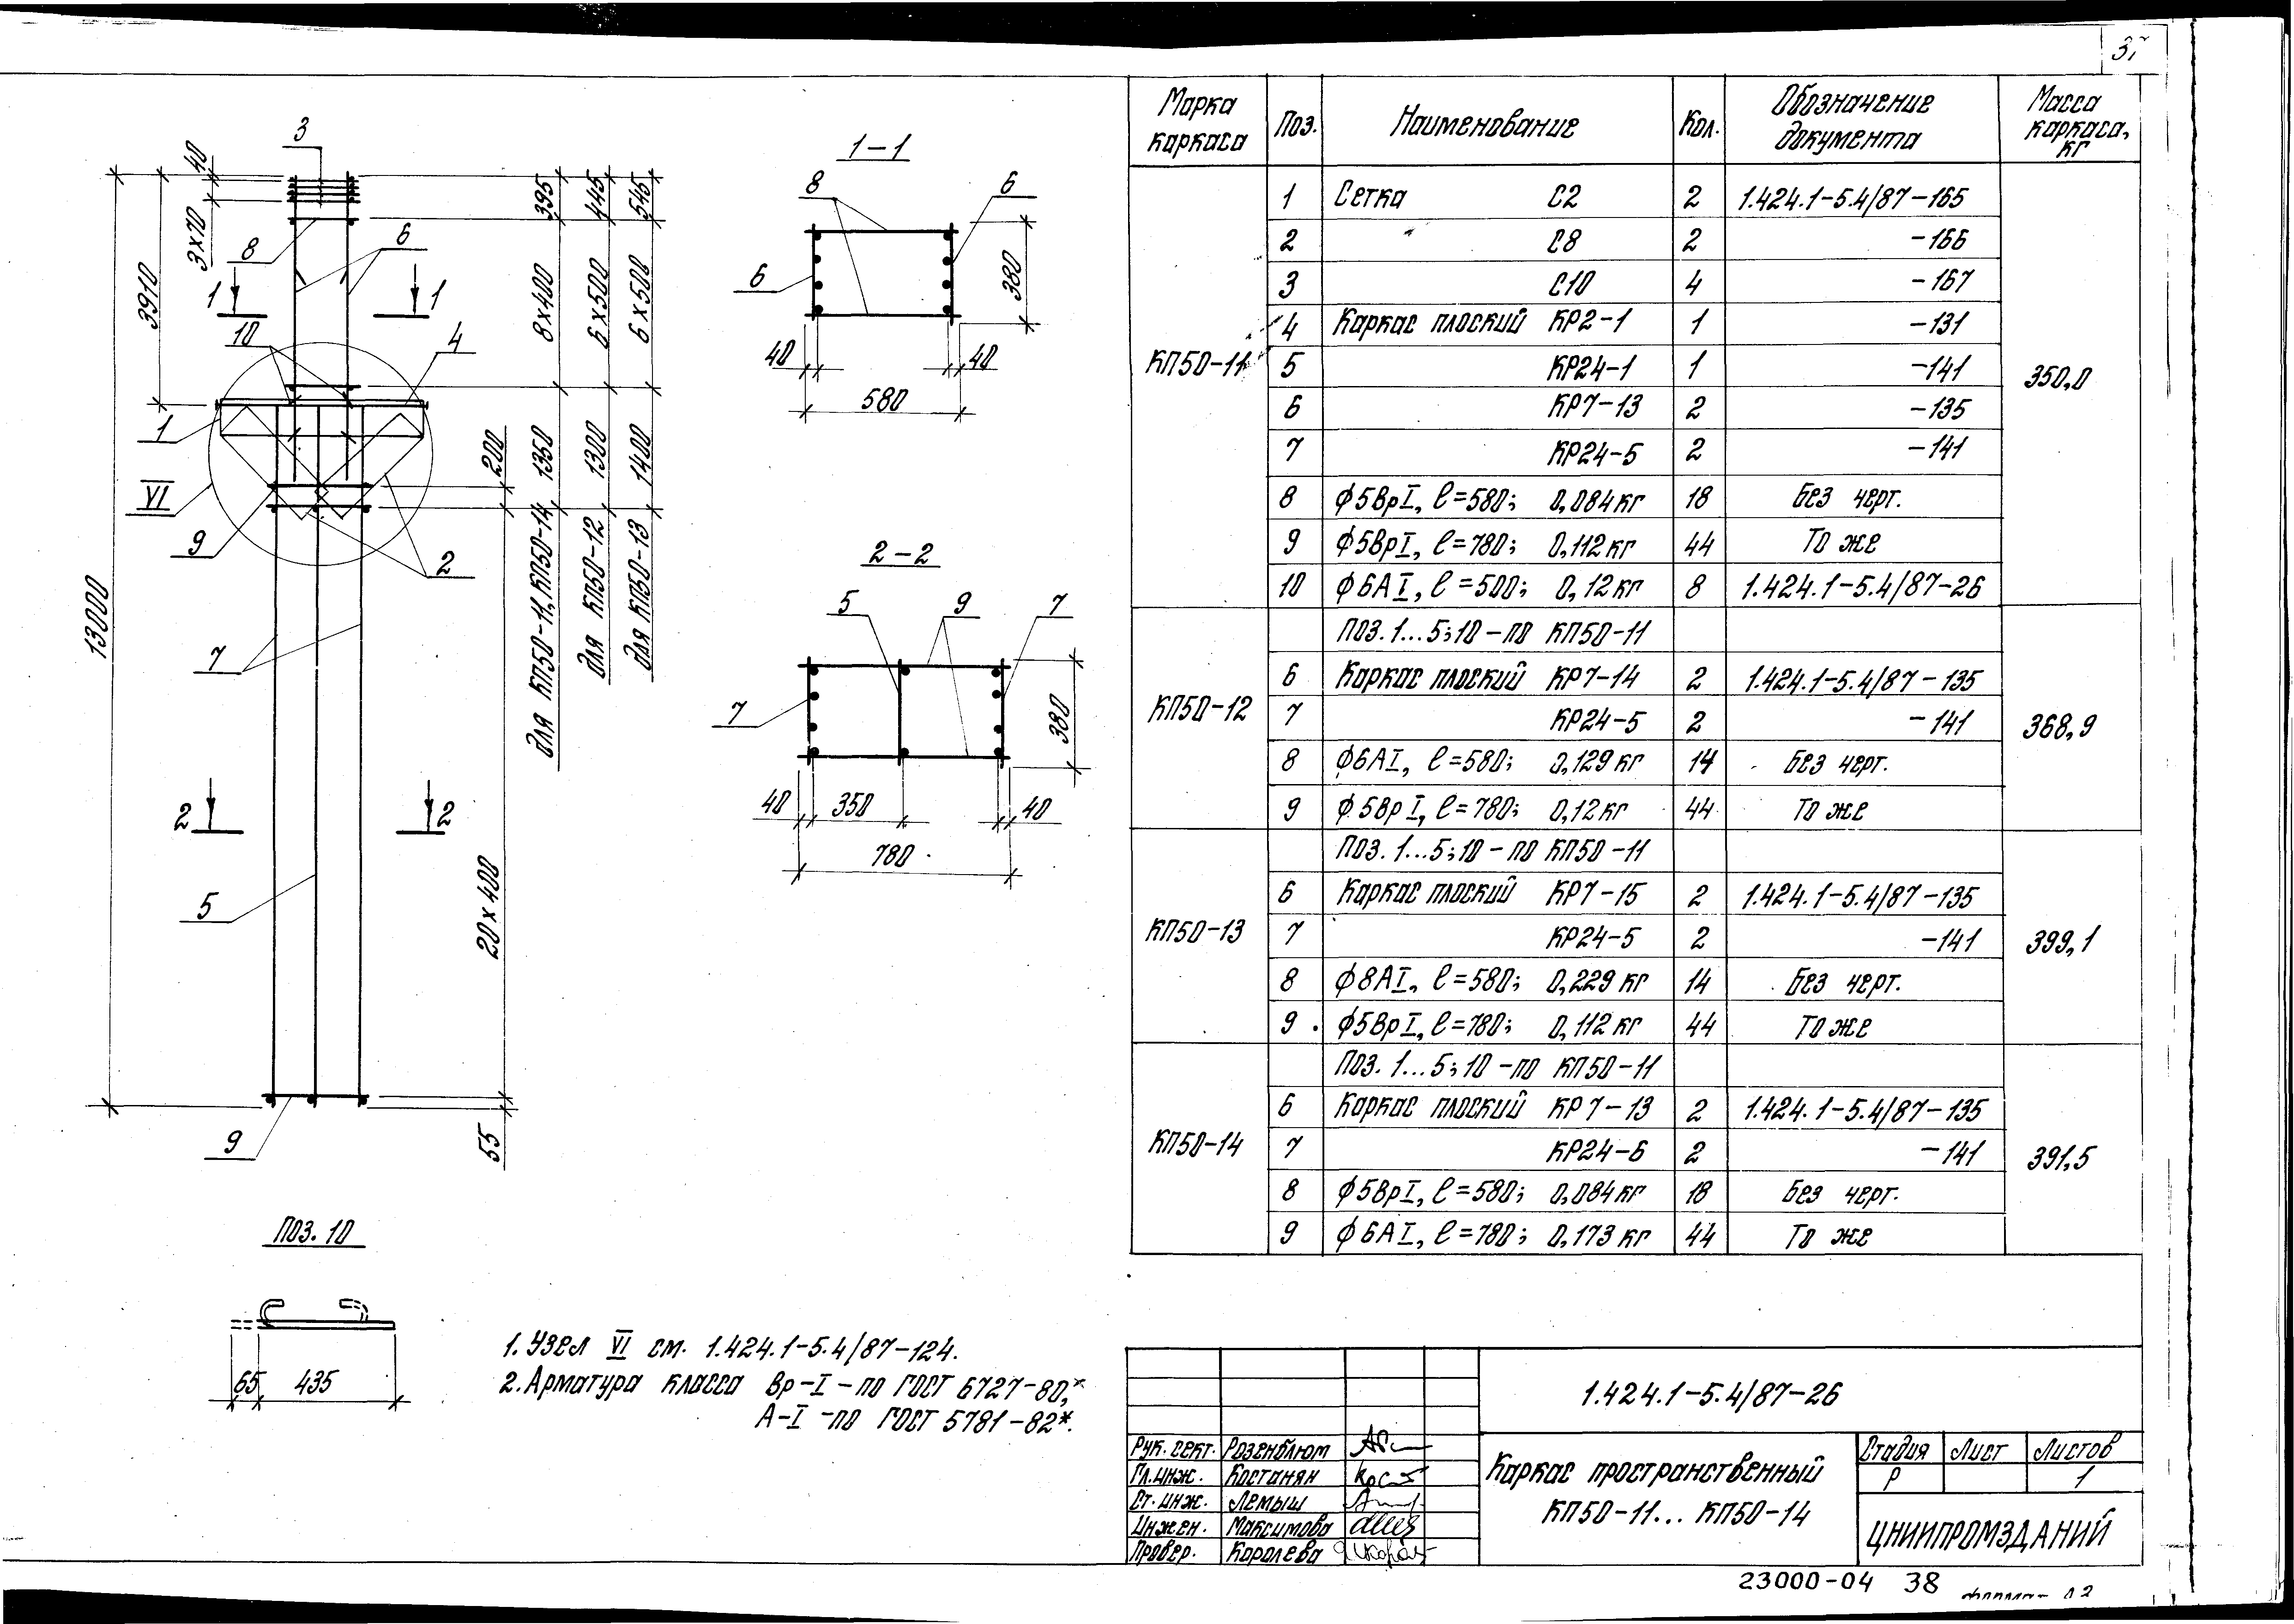 37
3
40
3х70
3910
13000
8
6
1
1
10
4
1
VI
9
2
7
2
2
5
9
395
445
545
8х400
6х500
6х500
1350
1300
1400
200
для КП50-11, КП50-14
для КП50-12
для КП50-13
20х400
55
1-1
8
6
6
380
40
40
580
2-2
5
9
7
7
380
40
350
40
780
Поз. 10
65
435
1. Узел VI см. 1.424.1-5.4/87-124.
2. Арматура класса Вр-I - по ГОСТ 6727-80,*
А-I - по ГОСТ 5781-82*.
Марка каркаса Поз. Наименование Кол. Обозначение документа Масса каркаса, кг
КП50-11 350,0
1 Сетка С2 2 1.424.1-5.4/87-165
2 С8 2 -166
3 С10 4 -167
4 Каркас плоский КР2-1 1 -131
5 КР24-1 1 -141
6 КР7-13 2 -135
7 КР24-5 2 -141
8 ϕ5ВрI, ℓ=580; 0,084кг 18 Без черт.
9 ϕ5ВрI, ℓ=780; 0,112кг 44 То же
10 ϕ6АI, ℓ=500; 0,12кг 8 1.424.1-5.4/87-26
КП50-12 368,9
Поз. 1...5;10 - по КП50-11
6 Каркас плоский КР7-14 2 1.424.1-5.4/87-135
7 КР24-5 2 -141
8 ϕ6АI, ℓ=580; 0,129кг 14 Без черт.
9 ϕ5ВрI, ℓ=780; 0,12кг 44 То же
КП50-13 399,1
Поз. 1...5;10 - по КП50-11
6 Каркас плоский КР7-15 2 1.424.1-5.4/87-135
7 КР24-5 2 -141
8 ϕ8АI, ℓ=580; 0,229кг 14 Без черт.
9 ϕ5ВрI, ℓ=780; 0,112кг 44 То же
КП50-14 391,5
Поз. 1...5;10 - по КП50-11
6 Каркас плоский КР7-13 2 1.424.1-5.4/87-135
7 КР24-6 2 -141
8 ϕ5ВрI, ℓ=580; 0,084кг 18 Без черт.
9 ϕ6АI, ℓ=780; 0,173кг 44 То же
1.424.1-5.4/87-26
Рук. сект. Розенблюм
Гл. инж. Костанян
Ст. инж. Лемыш
Инжен. Максимова
Провер. Королева
Каркас пространственный
КП50-11... КП50-14
Стадия Лист Листов
Р 1
ЦНИИПРОМЗДАНИЙ
23000-04 38
Формат А2